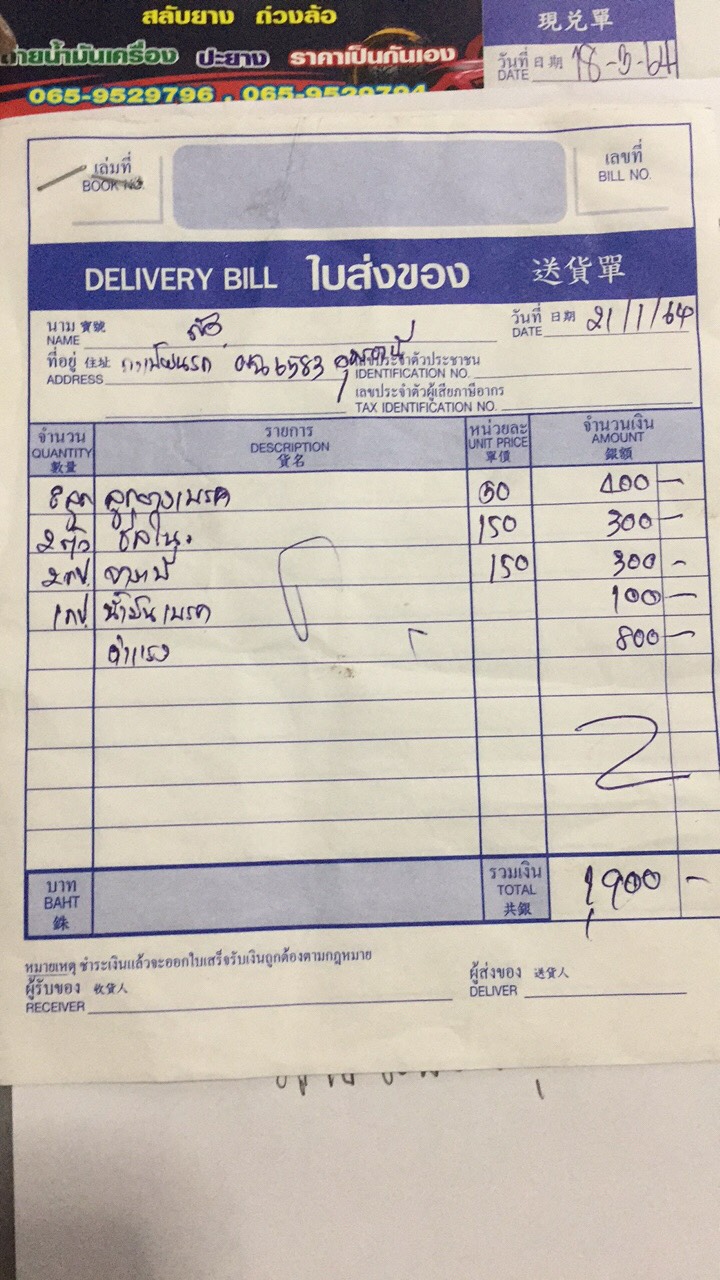 สลับยาง ถ่วงล้อ
ถ่ายน้ำมันเครื่อง ปะยาง ราคาเป็นกันเอง
065-9529796 , 065-9529794
現兑單
วันที่ 日期
DATE 18-3-64
เล่มที่
BOOK NO.
เลขที่
BILL NO.
DELIVERY BILL ใบส่งของ 送貨單
นาม 寳號
NAME
วันที่ 日期
DATE 21/1/64
ที่อยู่ 住址 ทะเบียนรถ 6583
ADDRESS
เลขประจำตัวประชาชน
IDENTIFICATION NO.
เลขประจำตัวผู้เสียภาษีอากร
TAX IDENTIFICATION NO.
จำนวน รายการ หน่วยละ จำนวนเงิน
QUANTITY DESCRIPTION UNIT PRICE AMOUNT
數量 貨名 單價 銀額
8 ลูก ลูกยางเบรค 50 400 -
2 ตัว ซีลใน 150 300 -
2 กป. จารบี 150 300 -
1 กป. น้ำมันเบรค 100 -
ค่าแรง 800 -
2
บาท
BAHT
銖
รวมเงิน
TOTAL
共銀
1,900 -
หมายเหตุ ชำระเงินแล้วจะออกใบเสร็จรับเงินถูกต้องตามกฎหมาย
ผู้รับของ 收貨人
RECEIVER
ผู้ส่งของ 送貨人
DELIVER